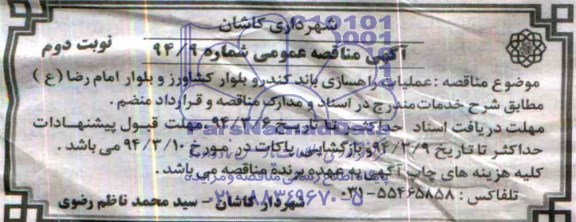 شهرداری کاشان
آگهی مناقصه عمومی شماره ۹۴/۹
نوبت دوم
موضوع مناقصه : عملیات راهسازی باند کندرو بلوار کشاورز و بلوار امام رضا (ع)
مطابق شرح خدمات مندرج در اسناد و مدارک مناقصه و قرارداد منضم .
مهلت دریافت اسناد حداکثر تا تاریخ ۹۴/۳/۶ مهلت قبول پیشنهادات
حداکثر تا تاریخ ۹۴/۳/۹ و بازگشایی پاکات در مورخ ۹۴/۳/۱۰ می باشد .
کلیه هزینه های چاپ آگهی به عهده برنده مناقصه می باشد .
تلفاکس : ۵۵۴۶۵۸۵۸-۰۳۱
شهردار کاشان - سید محمد ناظم رضوی
ParsNamadData
۰۲۱-۸۸۳۴۹۶۷۰-۵